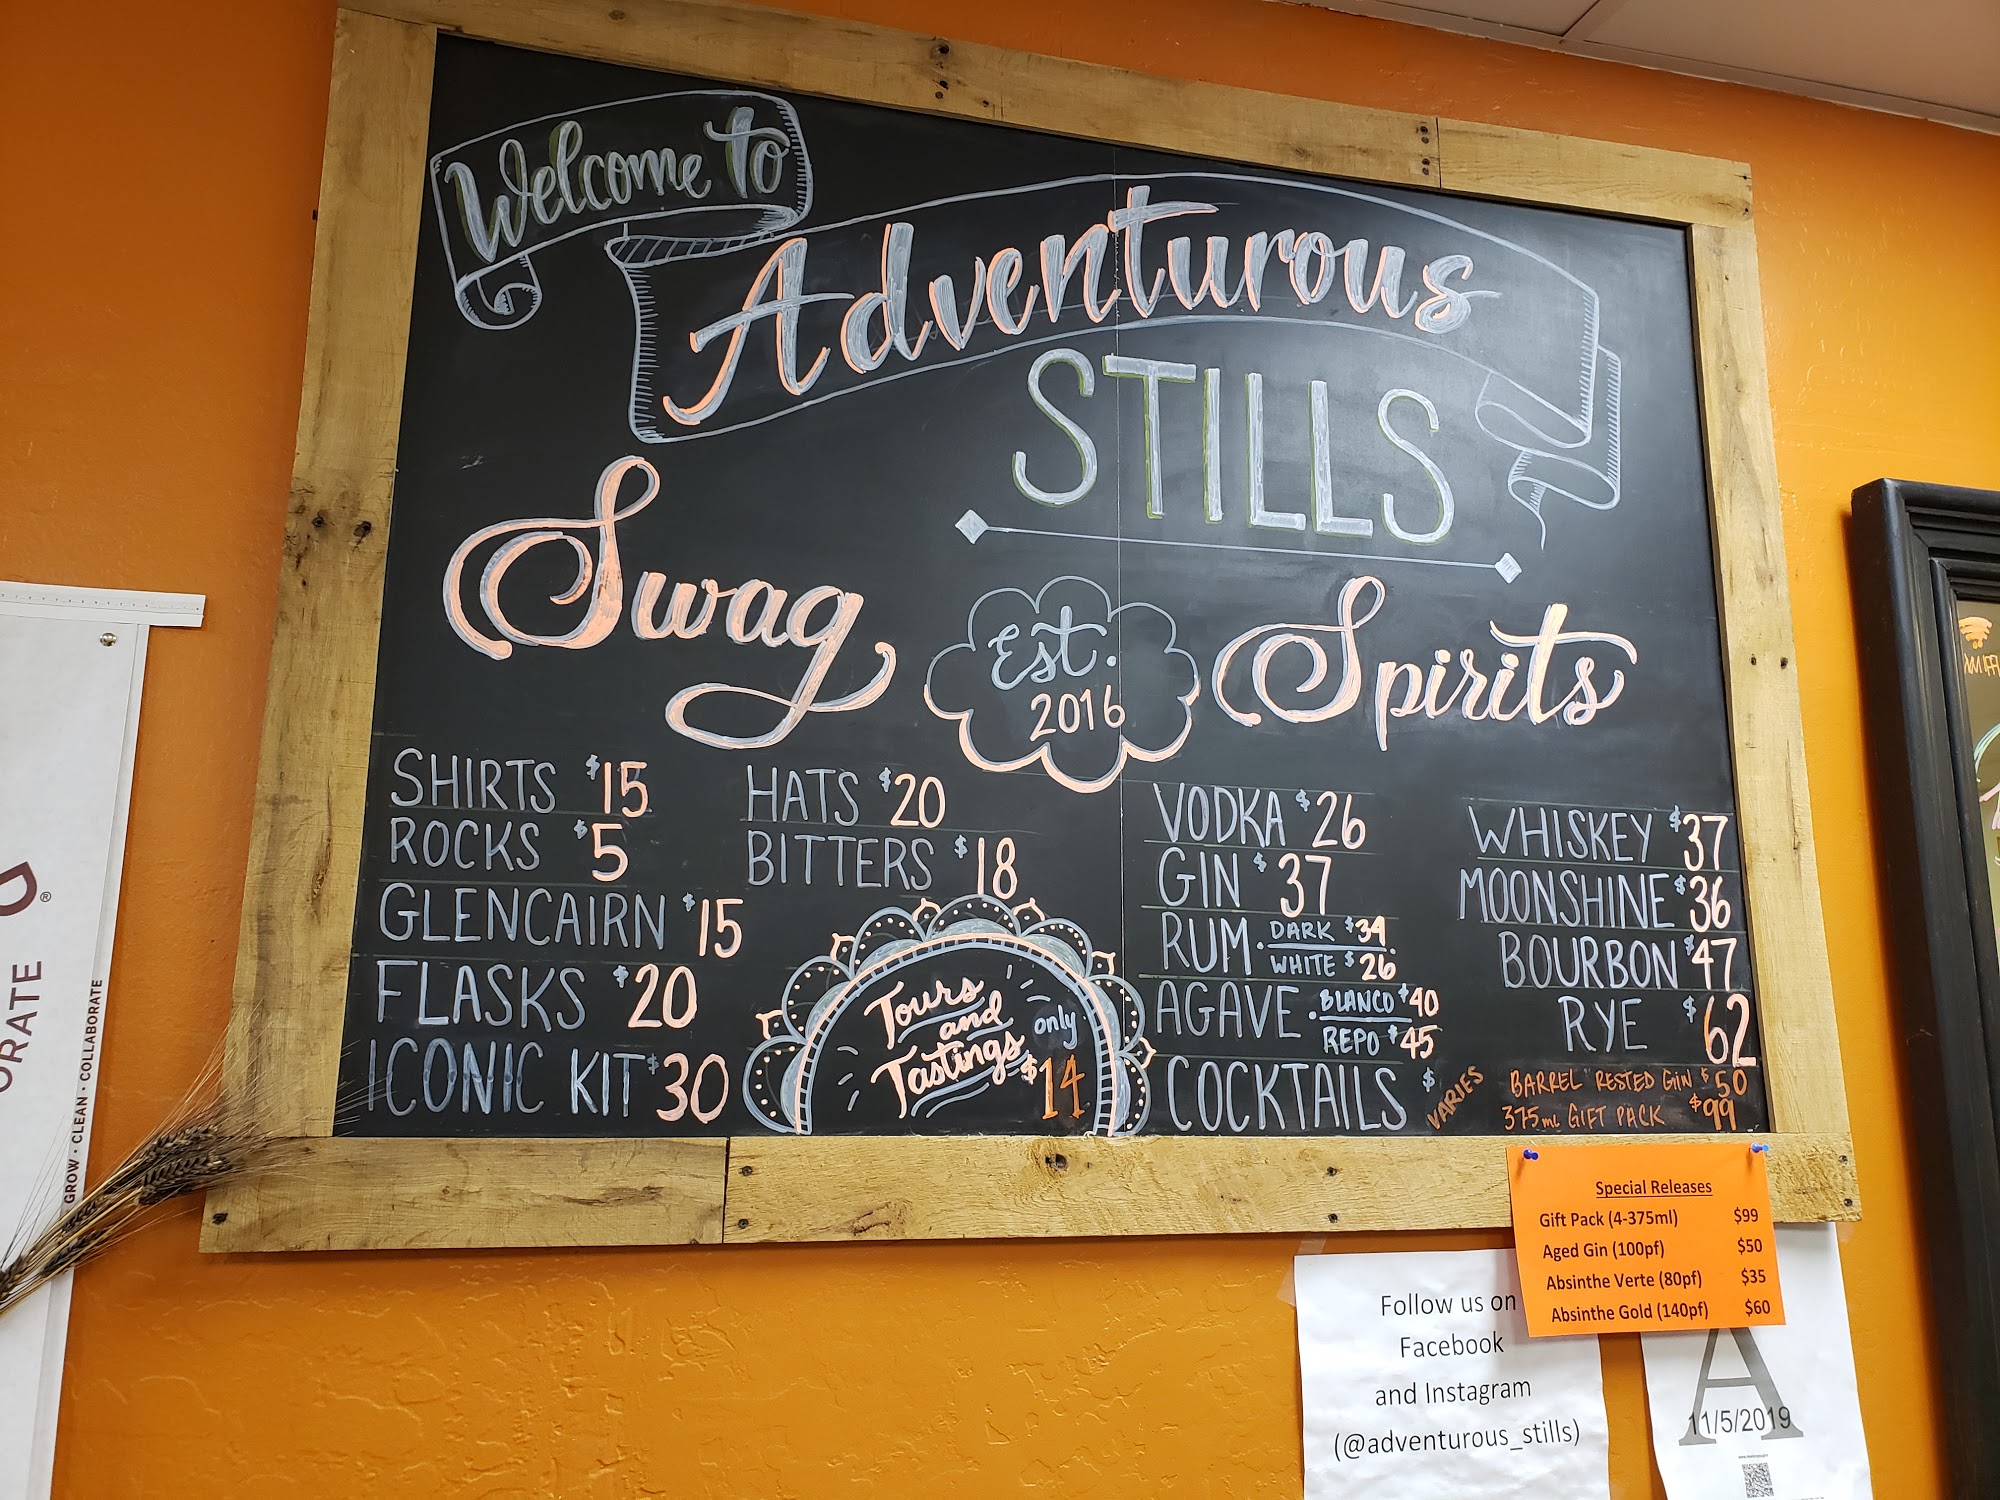 Welcome to
Adventurous
STILLS
Swag
Est.
2016
Spirits
SHIRTS $15
ROCKS $5
GLENCAIRN $15
FLASKS $20
ICONIC KIT $30
HATS $20
BITTERS $18
Tours
and
Tastings
only
$14
VODKA $26
GIN $37
RUM. DARK $34
WHITE $26
AGAVE. BLANCO $40
REPO $45
COCKTAILS $ VARIES
WHISKEY $37
MOONSHINE $36
BOURBON $47
RYE $62
BARREL RESTED GIN $50
375ml GIFT PACK $99
Special Releases
Gift Pack (4-375ml) $99
Aged Gin (100pf) $50
Absinthe Verte (80pf) $35
Absinthe Gold (140pf) $60
Follow us on
Facebook
and Instagram
(@adventurous_stills)
A
11/5/2019
ORATE
GROW · CLEAN · COLLABORATE
®